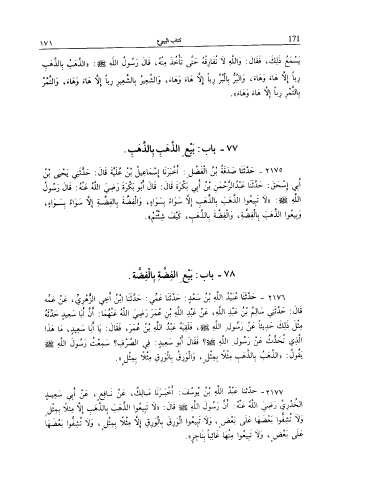 171 كتاب البيوع ١٧١
يَسْمَعُ ذَلِكَ، فَقَالَ: وَاللَّهِ لَا تُفَارِقُهُ حَتَّى تَأْخُذَ مِنْهُ، قَالَ رَسُولُ اللَّهِ ﷺ: «الذَّهَبُ بِالذَّهَبِ
رِباً إِلَّا هَاءَ وَهَاءَ، وَالبُرُّ بِالْبُرِّ رِباً إِلَّا هَاءَ وَهَاءَ، وَالشَّعِيرُ بِالشَّعِيرِ رِباً إِلَّا هَاءَ وَهَاءَ، وَالتَّمْرُ
بِالتَّمْرِ رِباً إِلَّا هَاءَ وَهَاءَ».
٧٧ - باب: بَيْعِ الذَّهَبِ بِالذَّهَبِ.
٢١٧٥ - حَدَّثَنَا صَدَقَةُ بْنُ الفَضْلِ: أَخْبَرَنَا إِسْمَاعِيلُ بْنُ عُلَيَّةَ قَالَ: حَدَّثَنِي يَحْيَى بْنُ
أَبِي إِسْحَقَ: حَدَّثَنَا عَبْدُالرَّحْمَنِ بْنُ أَبِي بَكْرَةَ قَالَ: قَالَ أَبُو بَكْرَةَ رَضِيَ اللَّهُ عَنْهُ: قَالَ رَسُولُ
اللَّهِ ﷺ: «لَا تَبِيعُوا الذَّهَبَ بِالذَّهَبِ إِلَّا سَوَاءً بِسَوَاءٍ، وَالْفِضَّةَ بِالفِضَّةِ إِلَّا سَوَاءً بِسَوَاءٍ،
وَبِيعُوا الذَّهَبَ بِالْفِضَّةِ، وَالْفِضَّةَ بِالذَّهَبِ، كَيْفَ شِئْتُمْ».
٧٨ - باب: بَيْعِ الفِضَّةِ بِالْفِضَّةِ.
٢١٧٦ - حَدَّثَنَا عُبَيْدُ اللَّهِ بْنُ سَعْدٍ: حَدَّثَنَا عَمِّي: حَدَّثَنَا ابْنُ أَخِي الزُّهْرِيِّ، عَنْ عَمِّهِ
قَالَ: حَدَّثَنِي سَالِمُ بْنُ عَبْدِ اللَّهِ، عَنْ عَبْدِ اللَّهِ بْنِ عُمَرَ رَضِيَ اللَّهُ عَنْهُمَا: أَنَّ أَبَا سَعِيدٍ حَدَّثَهُ
مِثْلَ ذَلِكَ حَدِيثاً عَنْ رَسُولِ اللَّهِ ﷺ، فَلَقِيَهُ عَبْدُ اللَّهِ بْنُ عُمَرَ، فَقَالَ: يَا أَبَا سَعِيدٍ، مَا هَذَا
الَّذِي تُحَدِّثُ عَنْ رَسُولِ اللَّهِ ﷺ؟ فَقَالَ أَبُو سَعِيدٍ: فِي الصَّرْفِ؟ سَمِعْتُ رَسُولَ اللَّهِ ﷺ
يَقُولُ: «الذَّهَبُ بِالذَّهَبِ مِثْلًا بِمِثْلٍ، وَالْوَرِقُ بِالْوَرِقِ مِثْلًا بِمِثْلٍ».
٢١٧٧ - حَدَّثَنَا عَبْدُ اللَّهِ بْنُ يُوسُفَ: أَخْبَرَنَا مَالِكٌ، عَنْ نَافِعٍ، عَنْ أَبِي سَعِيدٍ
الخُدْرِيِّ رَضِيَ اللَّهُ عَنْهُ: أَنَّ رَسُولَ اللَّهِ ﷺ قَالَ: «لَا تَبِيعُوا الذَّهَبَ بِالذَّهَبِ إِلَّا مِثْلًا بِمِثْلٍ،
وَلَا تُشِفُّوا بَعْضَهَا عَلَى بَعْضٍ، وَلَا تَبِيعُوا الوَرِقَ بِالْوَرِقِ إِلَّا مِثْلًا بِمِثْلٍ، وَلَا تُشِفُّوا بَعْضَهَا
عَلَى بَعْضٍ، وَلَا تَبِيعُوا مِنْهَا غَائِباً بِنَاجِزٍ».